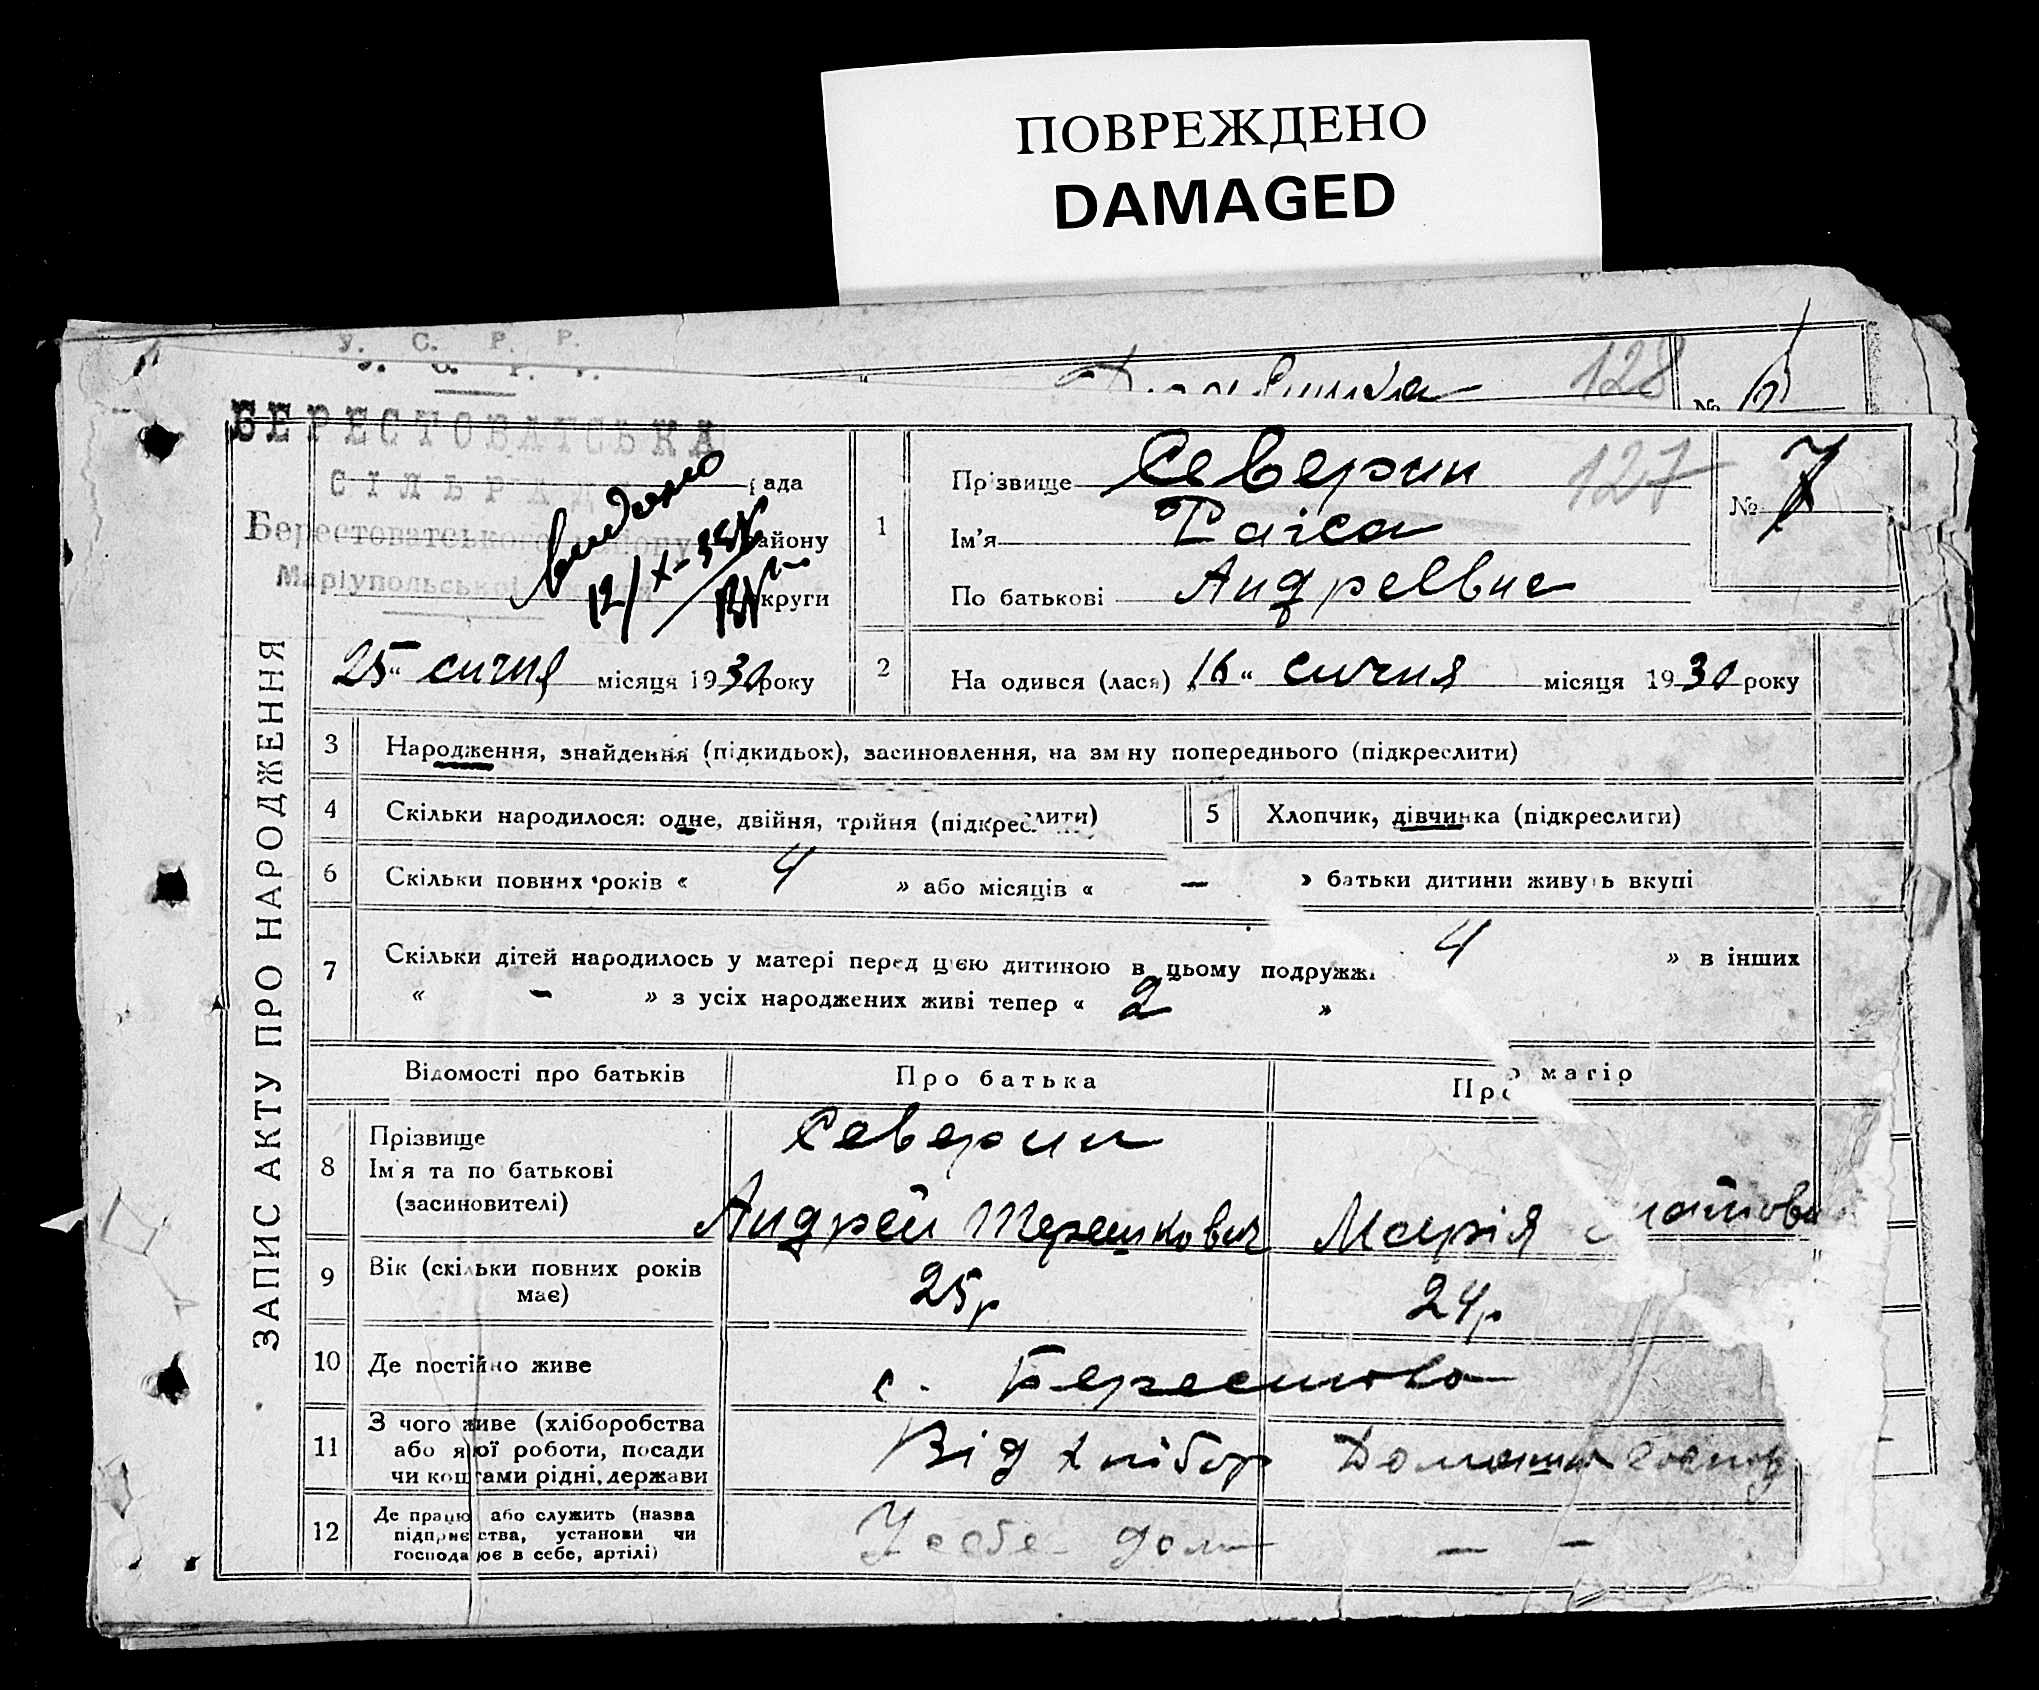 ПОВРЕЖДЕНО
DAMAGED
У. С. Р. Р.
128
№ 6
БЕРЕСТОВАТСЬКА
СІЛЬРАДА рада
Берестоватського району району
Маріупольської округи
видано
12/X-35
127
1 Прізвище Северин
Ім'я Раіса
По батькові Андреевна
№ 7
25 " сичня місяця 1930 року
2 На одився (лася) „16 " сичня місяця 1930 року
ЗАПИС АКТУ ПРО НАРОДЖЕННЯ
3 Народження, знайдення (підкидьок), засиновлення, на зм ну попереднього (підкреслити)
4 Скільки народилося: одне, двійня, трійня (підкреслити)
5 Хлопчик, дівчинка (підкреслити)
6 Скільки повних років « 4 » або місяців « — » батьки дитини живуть вкупі
7 Скільки дітей народилось у матері перед цією дитиною в цьому подружжі 4 » в інших
« – » з усіх народжених живі тепер « 2 »
Відомості про батьків Про батька Про матір
8 Прізвище
Ім'я та по батькові
(засиновителі)
Северин
Андрей Терешкович Марія
9 Вік (скільки повних років
має)
25р 24р
10 Де постійно живе с. Берестово
11 З чого живе (хліборобства
або якої роботи, посади
чи коштами рідні, держави
Від хлібор Домашн господ
12 Де працює або служить (назва
підприємства, установи чи
господарює в себе, артілі)
У себе дома — —